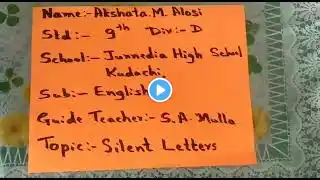 Name:- Akshata.M.Alosi
Std:- 9th Div:- D
School:- Junnedia High School
Kudachi.
Sub:- English
Guide Teacher:- S.A.Mulla
Topic:- Silent Letters